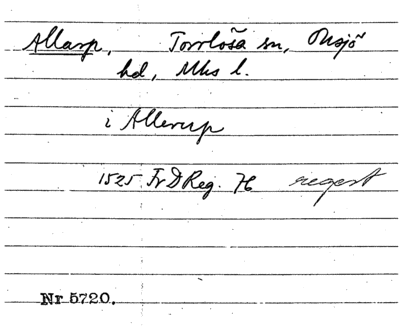 Allarp, Torrlösa sn, Onsjö
hd, Mhs l.
i Allerup
1525 Fr D Reg. 76 regest
Nr 5720.